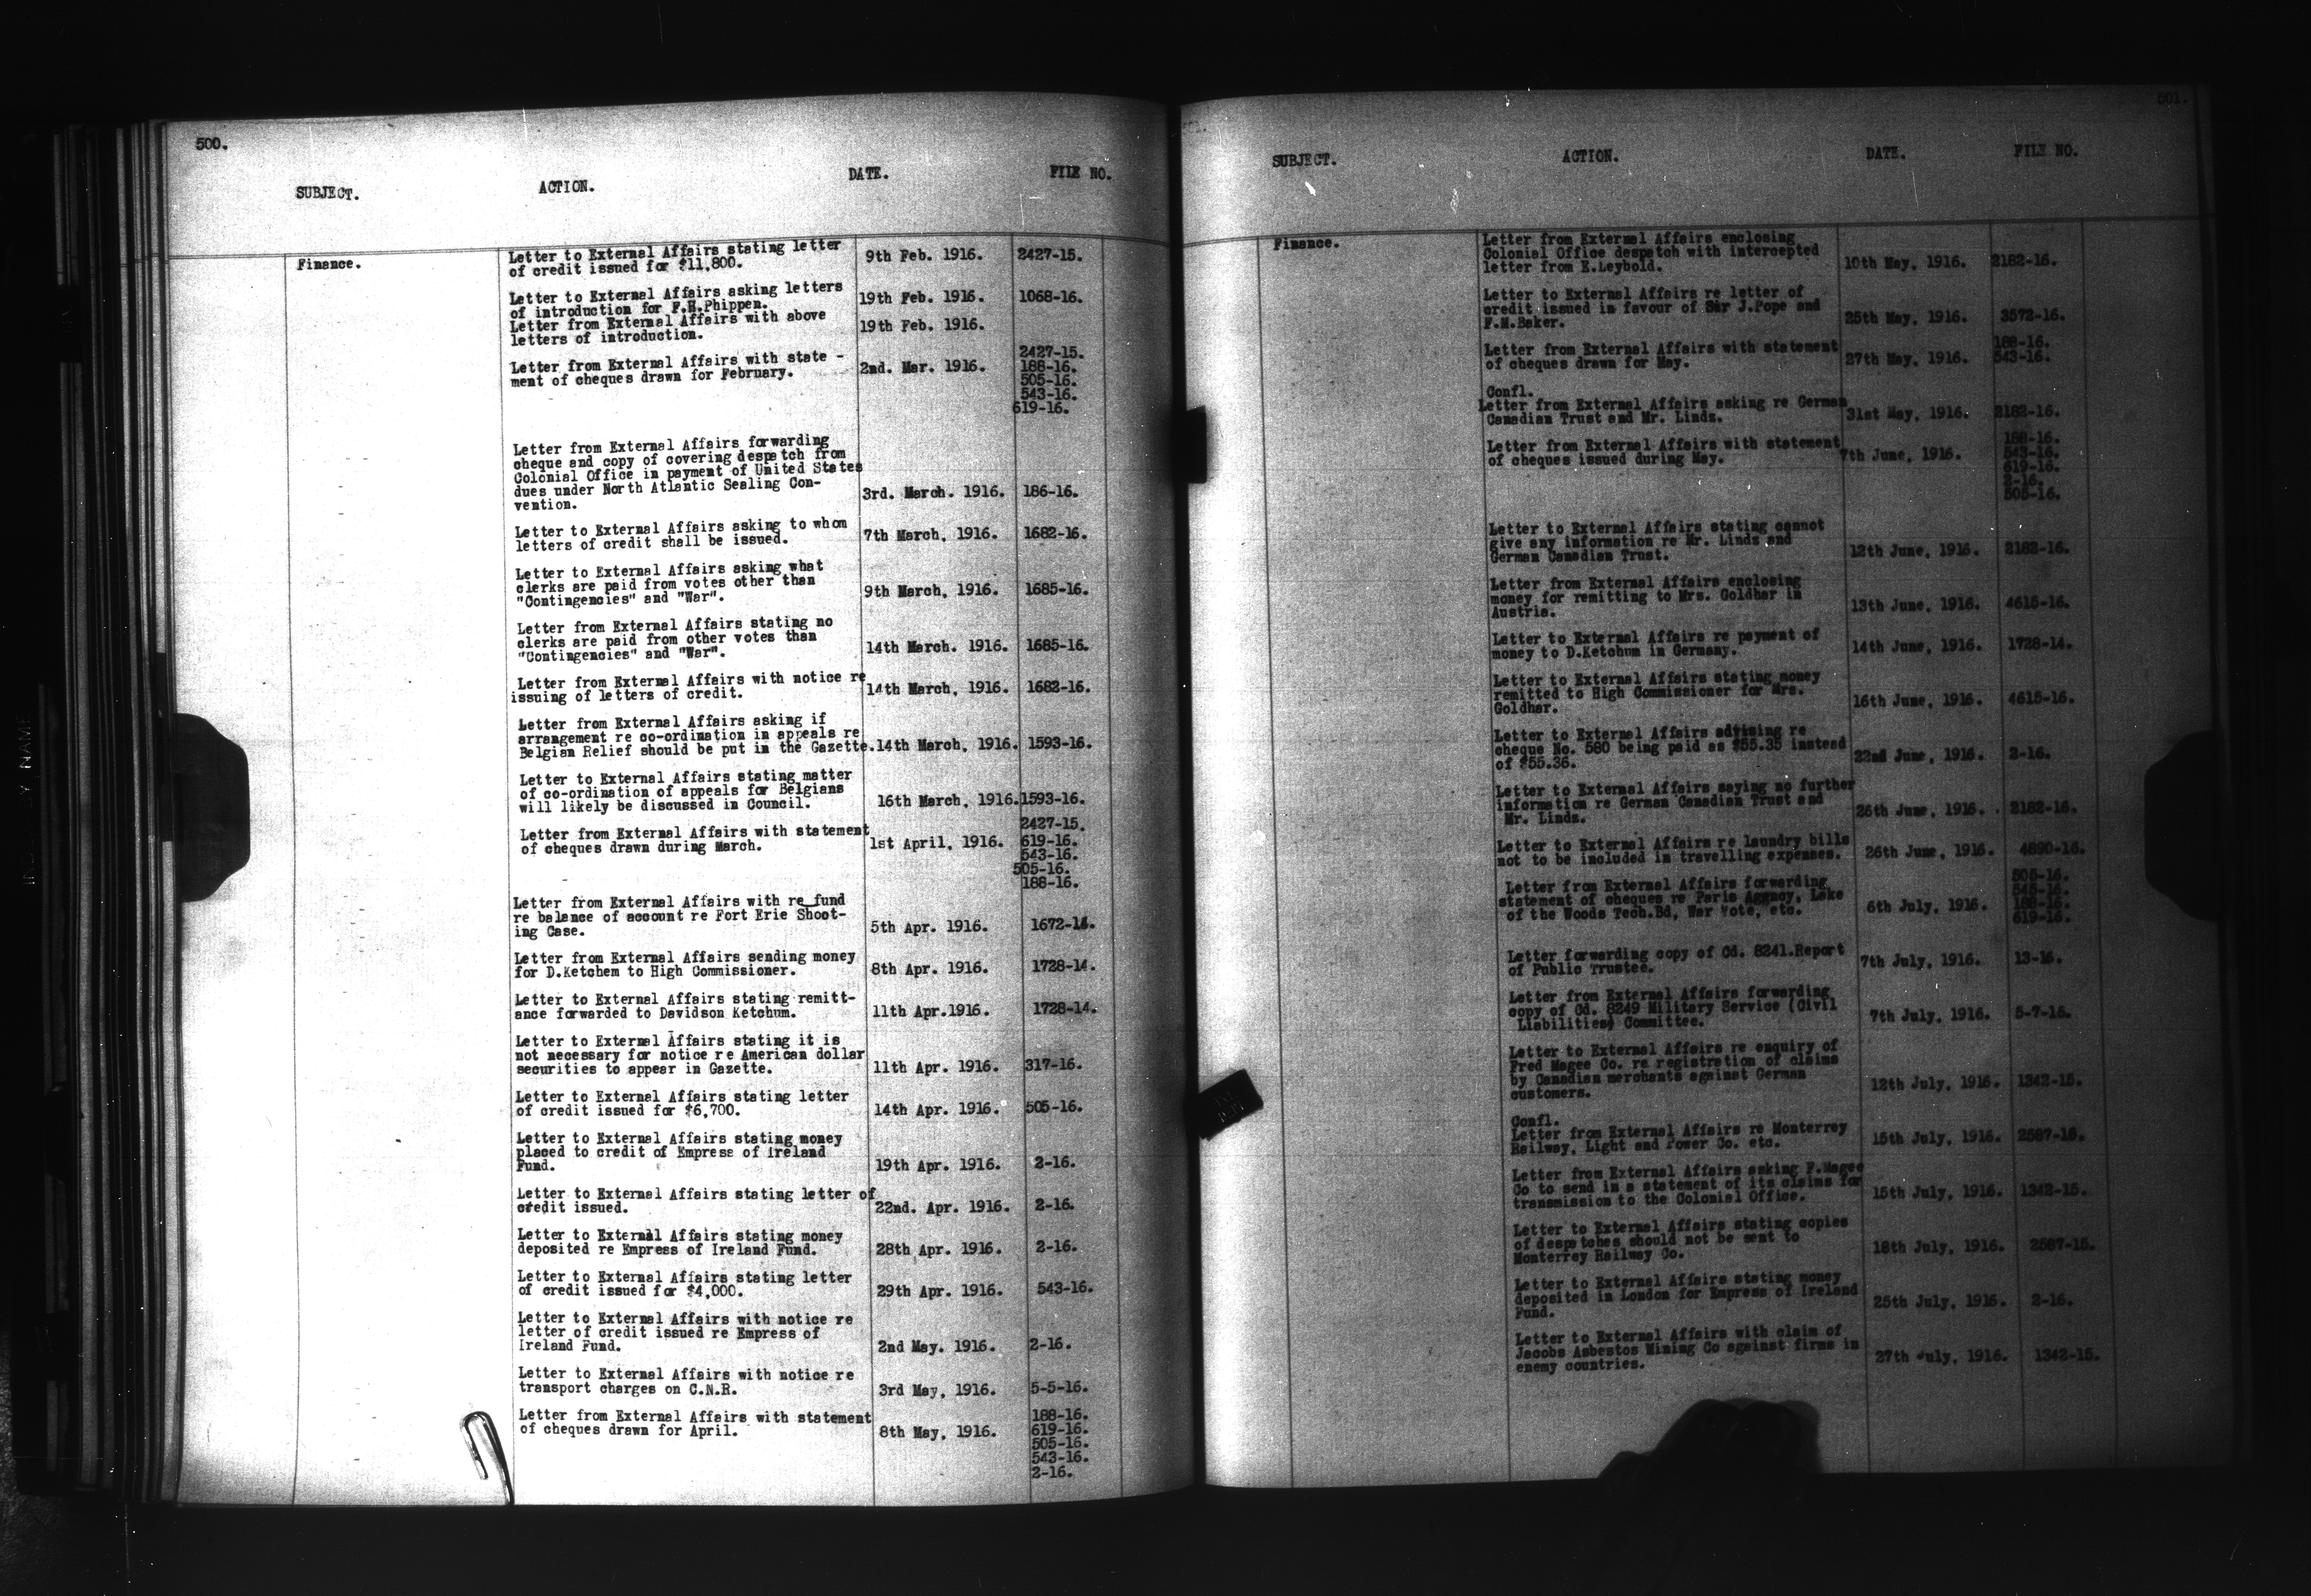 500.
SUBJECT. ACTION. DATE. FILE NO.
Finance.
Letter to External Affairs stating letter
of credit issued for $11,800. 9th Feb. 1916. 2427-15.
Letter to External Affairs asking letters
of introduction for F.H.Phippen. 19th Feb. 1916. 1068-16.
Letter from External Affairs with above
letters of introduction. 19th Feb. 1916.
Letter from External Affairs with state -
ment of cheques drawn for February. 2nd. Mar. 1916. 2427-15.
188-16.
505-16.
543-16.
619-16.
Letter from External Affairs forwarding
cheque and copy of covering despatch from
Colonial Office in payment of United States
dues under North Atlantic Sealing Con-
vention. 3rd. March. 1916. 186-16.
Letter to External Affairs asking to whom
letters of credit shall be issued. 7th March, 1916. 1682-16.
Letter to External Affairs asking what
clerks are paid from votes other than
"Contingencies" and "War". 9th March, 1916. 1685-16.
Letter from External Affairs stating no
clerks are paid from other votes than
"Contingencies" and "War". 14th March. 1916. 1685-16.
Letter from External Affairs with notice re
issuing of letters of credit. 14th March, 1916. 1682-16.
Letter from External Affairs asking if
arrangement re co-ordination in appeals re
Belgian Relief should be put in the Gazette. 14th March, 1916. 1593-16.
Letter to External Affairs stating matter
of co-ordination of appeals for Belgians
will likely be discussed in Council. 16th March, 1916. 1593-16.
Letter from External Affairs with statement
of cheques drawn during March. 1st April, 1916. 2427-15.
619-16.
543-16.
505-16.
188-16.
Letter from External Affairs with re fund
re balance of account re Fort Erie Shoot-
ing Case. 5th Apr. 1916. 1672-14.
Letter from External Affairs sending money
for D.Ketchem to High Commissioner. 8th Apr. 1916. 1728-14.
Letter to External Affairs stating remitt-
ance forwarded to Davidson Ketchum. 11th Apr.1916. 1728-14.
Letter to External Affairs stating it is
not necessary for notice re American dollar
securities to appear in Gazette. 11th Apr. 1916. 317-16.
Letter to External Affairs stating letter
of credit issued for $6,700. 14th Apr. 1916. 505-16.
Letter to External Affairs stating money
placed to credit of Empress of Ireland
Fund. 19th Apr. 1916. 2-16.
Letter to External Affairs stating letter of
credit issued. 22nd. Apr. 1916. 2-16.
Letter to External Affairs stating money
deposited re Empress of Ireland Fund. 28th Apr. 1916. 2-16.
Letter to External Affairs stating letter
of credit issued for $4,000. 29th Apr. 1916. 543-16.
Letter to External Affairs with notice re
letter of credit issued re Empress of
Ireland Fund. 2nd May. 1916. 2-16.
Letter to External Affairs with notice re
transport charges on C.N.R. 3rd May, 1916. 5-5-16.
Letter from External Affairs with statement
of cheques drawn for April. 8th May, 1916. 188-16.
619-16.
505-16.
543-16.
2-16.
501.
SUBJECT. ACTION. DATE. FILE NO.
Finance.
Letter from External Affairs enclosing
Colonial Office despatch with intercepted
letter from E.Leybold. 10th May, 1916. 2182-16.
Letter to External Affairs re letter of
credit issued in favour of Sir J.Pope and
F.M.Baker. 25th May, 1916. 3572-16.
Letter from External Affairs with statement
of cheques drawn for May. 27th May, 1916. 188-16.
543-16.
Confl.
Letter from External Affairs asking re German
Canadian Trust and Mr. Linds. 31st May, 1916. 2182-16.
Letter from External Affairs with statement
of cheques issued during May. 7th June, 1916. 188-16.
543-16.
619-16.
2-16.
505-16.
Letter to External Affairs stating cannot
give any information re Mr. Linds and
German Canadian Trust. 12th June, 1916. 2182-16.
Letter from External Affairs enclosing
money for remitting to Mrs. Goldhar in
Austria. 13th June, 1916. 4615-16.
Letter to External Affairs re payment of
money to D.Ketchum in Germany. 14th June, 1916. 1728-14.
Letter to External Affairs stating money
remitted to High Commissioner for Mrs.
Goldhar. 16th June, 1916. 4615-16.
Letter to External Affairs advising re
cheque No. 580 being paid as $55.35 instead
of $55.36. 22nd June, 1916. 2-16.
Letter to External Affairs saying no further
information re German Canadian Trust and
Mr. Linds. 26th June, 1916. 2182-16.
Letter to External Affairs re laundry bills
not to be included in travelling expenses. 26th June, 1916. 4890-16.
Letter from External Affairs forwarding
statement of cheques re Paris Agency, Lake
of the Woods Tech.Bd, War Vote, etc. 6th July, 1916. 505-16.
543-16.
188-16.
619-16.
Letter forwarding copy of Cd. 8241.Report
of Public Trustee. 7th July, 1916. 13-16.
Letter from External Affairs forwarding
copy of Cd. 8249 Military Service (Civil
Liabilities) Committee. 7th July, 1916. 5-7-16.
Letter to External Affairs re enquiry of
Fred Magee Co. re registration of claims
by Canadian merchants against German
customers. 12th July, 1916. 1342-15.
Confl.
Letter from External Affairs re Monterrey
Railway, Light and Power Co. etc. 15th July, 1916. 2587-15.
Letter from External Affairs asking F.Magee
Co to send in a statement of its claims for
transmission to the Colonial Office. 15th July, 1916. 1342-15.
Letter to External Affairs stating copies
of despatches should not be sent to
Monterrey Railway Co. 18th July, 1916. 2587-15.
Letter to External Affairs stating money
deposited in London for Empress of Ireland
Fund. 25th July, 1916. 2-16.
Letter to External Affairs with claim of
Jacobs Asbestos Mining Co against firms in
enemy countries. 27th July, 1916. 1342-15.